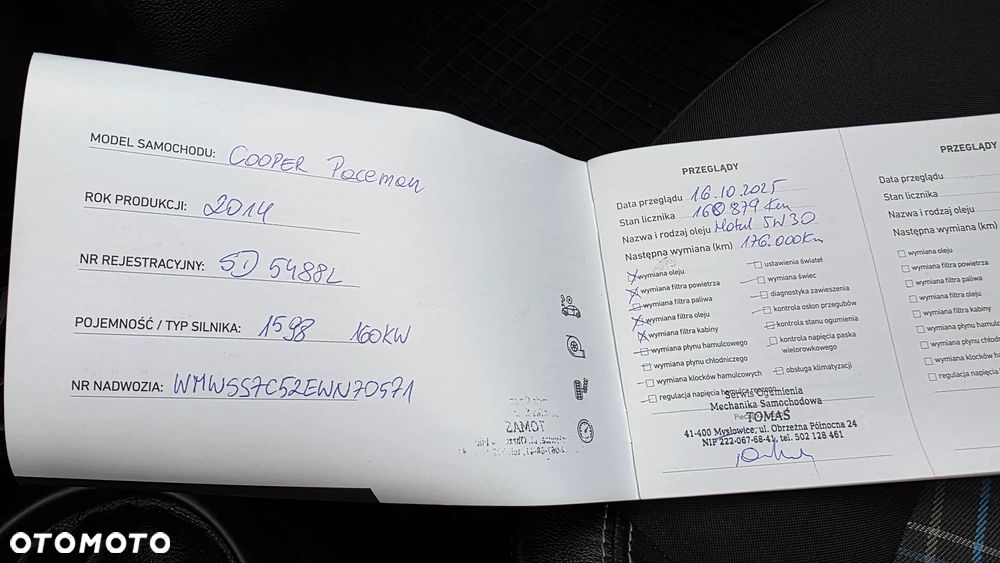 MODEL SAMOCHODU: COOPER Paceman
ROK PRODUKCJI: 2014
NR REJESTRACYJNY: SD 5488L
POJEMNOŚĆ / TYP SILNIKA: 1598 160KW
NR NADWOZIA: WMWSS7C52EWN70571
TOMAŚ
PRZEGLĄDY
Data przeglądu 16.10.2025
Stan licznika 168 879 Km
Nazwa i rodzaj oleju Motul 5W30
Następna wymiana (km) 176.000Km
wymiana oleju
wymiana filtra powietrza
wymiana filtra paliwa
wymiana filtra oleju
wymiana filtra kabiny
wymiana płynu hamulcowego
wymiana płynu chłodniczego
wymiana klocków hamulcowych
regulacja napięcia hamulca ręcznego
ustawienia świateł
wymiana świec
diagnostyka zawieszenia
kontrola osłon przegubów
kontrola stanu ogumienia
kontrola napięcia paska
wielorowkowego
obsługa klimatyzacji
Serwis Ogumienia
Mechanika Samochodowa
TOMAŚ
41-400 Mysłowice, ul. Obrzeżna Północna 24
NIP 222-067-68-41, tel. 502 128 461
PRZEGLĄDY
Data przeglądu
Stan licznika
Nazwa i rodzaj oleju
Następna wymiana (km)
wymiana oleju
wymiana filtra powietrza
wymiana filtra paliwa
wymiana filtra oleju
wymiana filtra kabiny
wymiana płynu
wymiana płynu
wymiana klocków
regulacja napięcia
OTOMOTO